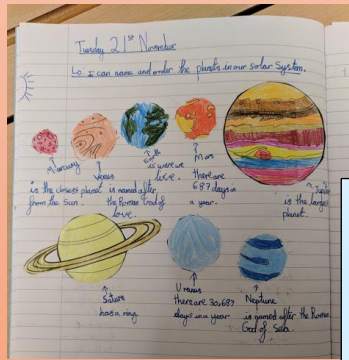 Tuesday 21st November
Lo I can name and order the planets in our solar System.
Mercury
is the closest planet
from the Sun.
Venus
is named after
the Roman God of
love.
Earth
is were we
live.
Mars
there are
687 days in
a year.
Jupiter
is the largest
planet.
Saturn
has a ring
Uranus
there are 30,687
days in a year
Neptune
is named after the Roman
God of Sea